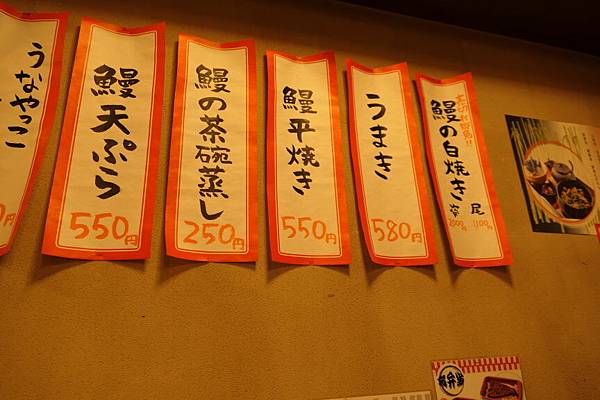 うなやっこ
鰻天ぷら
550円
鰻の茶碗蒸し
250円
鰻平焼き
550円
うまき
580円
鰻の白焼き
尾
1100円
弁当